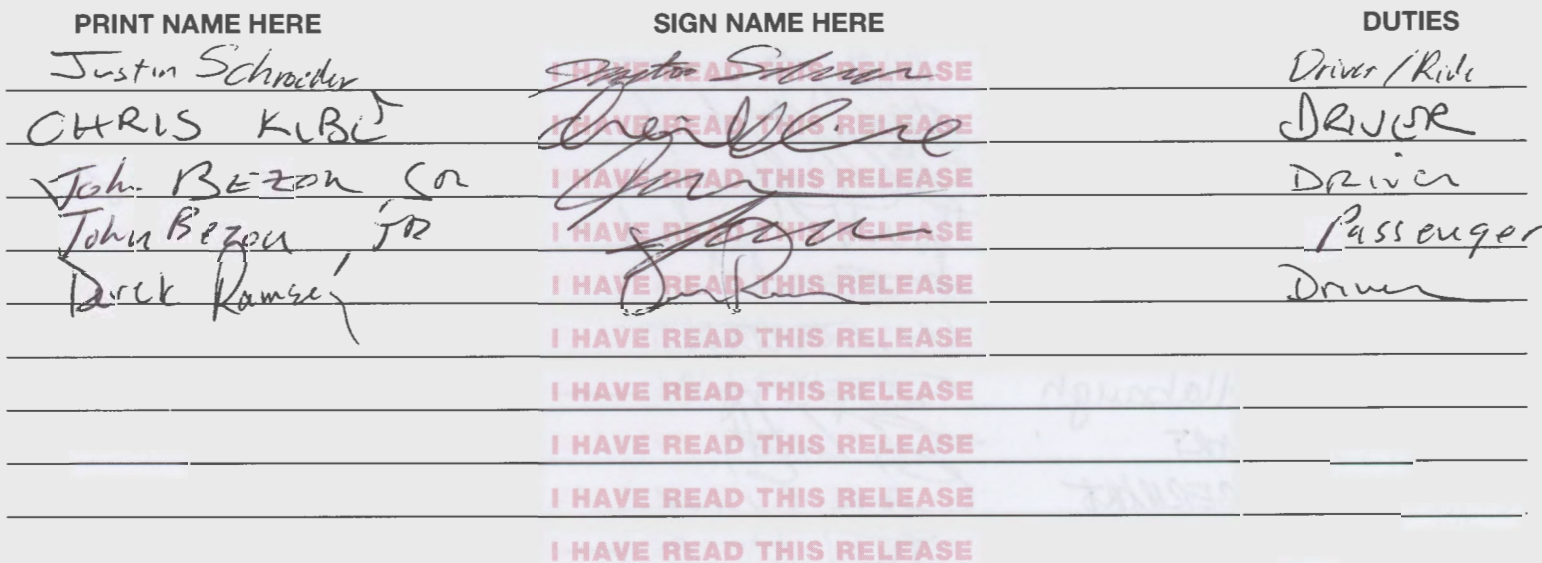 PRINT NAME HERE SIGN NAME HERE DUTIES
Justin Schroeder I HAVE READ THIS RELEASE Driver / Ride
CHRIS I HAVE READ THIS RELEASE DRIVER
John BEZON I HAVE READ THIS RELEASE Driver
John Bezon JR I HAVE READ THIS RELEASE Passenger
Derek Ramsey I HAVE READ THIS RELEASE Driver
I HAVE READ THIS RELEASE
I HAVE READ THIS RELEASE
I HAVE READ THIS RELEASE
I HAVE READ THIS RELEASE
I HAVE READ THIS RELEASE